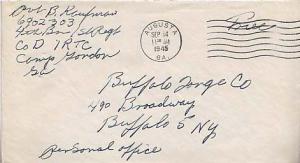 Pvt B. Kaufman
6902303
4th Bn / 1st Regt
Co D IRTC
Camp Gordon
Ga
AUGUSTA
SEP 14
11 AM
1945
GA.
Free
Buffalo Forge Co
490 Broadway
Buffalo 5 NY
Personal office